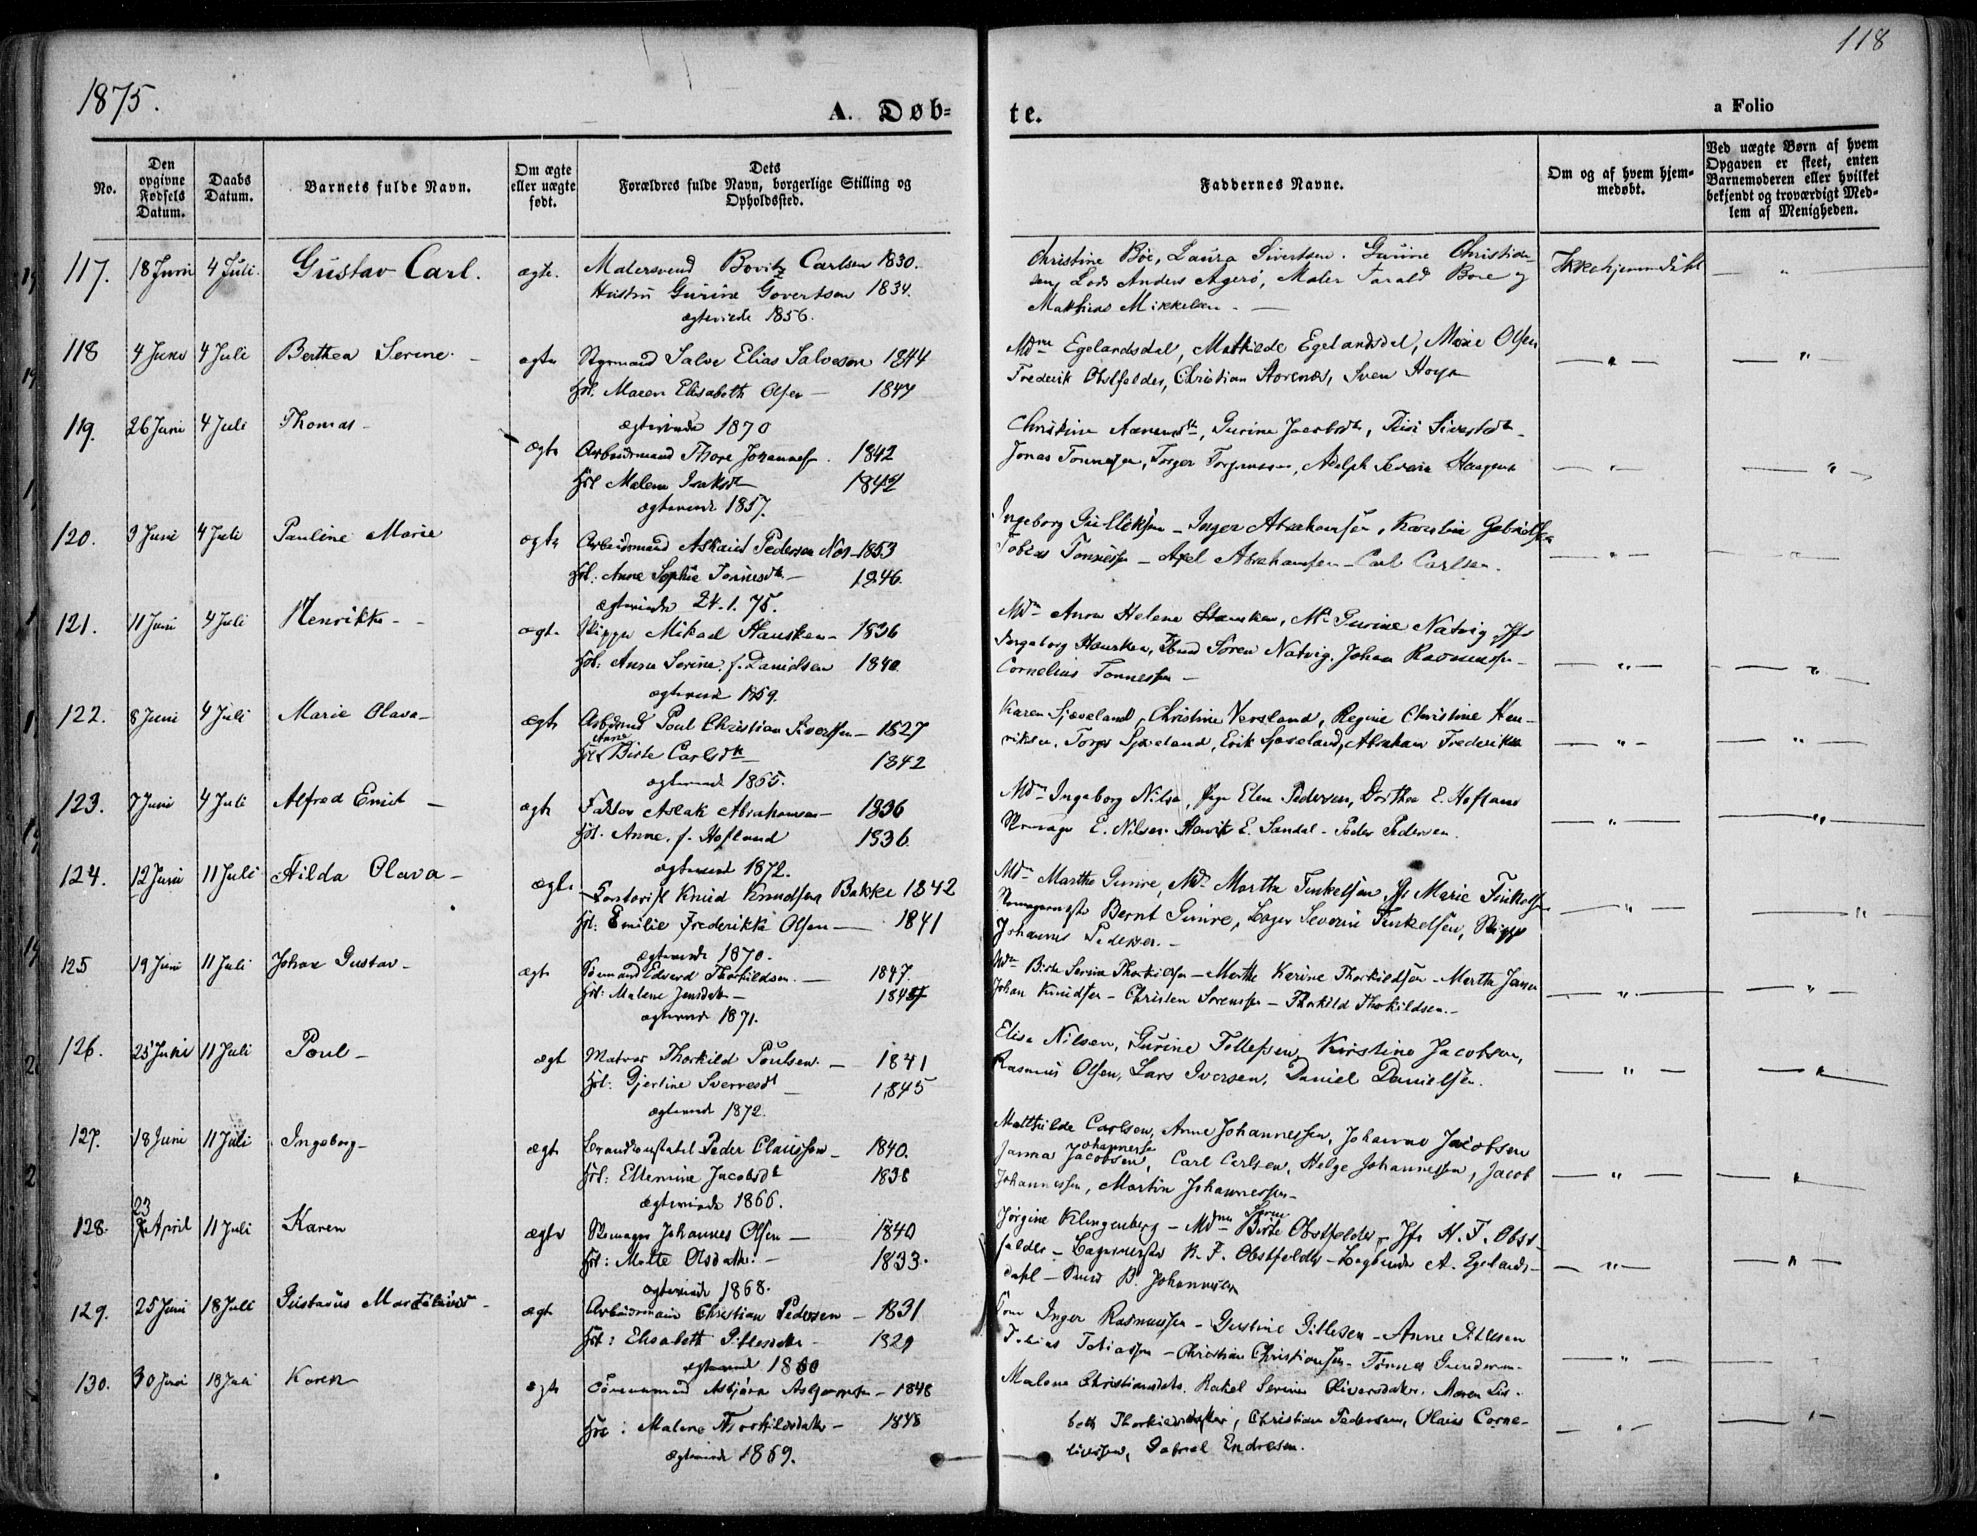 118
1875.
A. Døb-
te.
a Folio
No.
Den opgivne Fødsels Datum.
Daabs Datum.
Barnets fulde Navn.
Om ægte eller uægte født.
Dets Forældres fulde Navn, borgerlige Stilling og Opholdssted.
Faddernes Navne.
Om og af hvem hjemmedøbt.
Ved uægte Børn af hvem Opgaven er skeet, enten Barnemoderen eller hvilket bekjendt og troværdigt Medlem af Menigheden.
117. 18 Juni 4 Juli. Gustav Carl. ægte. Malersvend Bovitz Carlsen 1830.
Hustru Gurine Govertsen 1834.
ægteviede 1856.
Christine Böe, Laura Sivertsen. Gurine Christide-
Lods Anders Agerö, Maler Tarald Bore og
Mathias Mikkelsen -
118 4 Juni 4 Juli Berthea Serine. ægte Styrmand Salve Elias Salvesen 1844
Hst. Maren Elisabeth Olsen - 1847
ægteviede 1870
Mdme Egelandsdal, Mathilde Egelandsdal, Marie Olsen
Frederik Obstfelder, Christian Storenes, Sven Hoye
119. 26 Juni 4 Juli Thomas - ægte Arbeidsmand Thore Johannes. 1842
Hst Malene Isaksdt 1842
ægteviede 1857.
Jonas Tonnesen, Torger Torgersen, Adolph Severin Haagens
120. 3 Juni 4 Juli Pauline Marie ægte Arbeidsmand Pedersen Nos - 1853
Hst: Anne Sophie Tonnesdt - 1846.
ægteviede 24.1.75.
Ingeborg Gulliksen - Inger Abrahamsen, Karoline Gabrielsen
Tobias Tonnesen - Axel Abrahamsen - Carl Carlsen.
121. 11 Juni 4 Juli Henrikke - ægte Skipper Mikael Hausken - 1836
Hst: Anna Serine f. Danielsen 1840.
ægteviede 1859.
Mdm Anna Helene Hausken, Md Gurine Natvig, Jfr
Ingeborg Hausken, Søren Natvig, Johan Rasmussen -
Cornelius Tonnessen -
122. 8 Juni 4 Juli Marie Olava - ægte Arbdmd Poul Christian Sivertsen - 1827
Hst Anne Birte Carlsdt - 1842
ægteviede 1865.
Karen Sjæveland, Christine Versland, Regine Christine Hen-
riksen, Torger Sjæveland, Erik Sjæveland, Abraham Frederiksen
123. 7 Juni 4 Juli Alfred Emil - ægte Faktor Aslak Abrahamsen - 1836
Hst: Anne, f. Hofland 1836.
ægteviede 1872.
Mdm Ingeborg Nilsen, Elen Pedersen, Dorthea E. Hofland
E. Nilsen. Henrik E. Sandal - Peder Pedersen.
124. 12 Juni 11 Juli Hilda Olava - ægte Knud Knudsen Bakke 1842
Hst: Emilie Frederikke Olsen - 1841
ægteviede 1870.
Mdm Marthe Gunire, Mdm Martha Tinkelsen, Jfr Marie
Bernt Gunire, Bager Severin Tinkelsen, Skipper
Johannes Pedersen. -
125 19 Juni 11 Juli Johan Gustav - ægte Sømand Edvard Thorkildsen. - 1847.
Hst: Malene Jensdatt - 1847
ægteviede 1871.
Mdm Birte Serine Thorkildsen - Marthe Karine Thorkildsen - Martha Jansen
Johan Knudsen - Christen Sørensen - Thorkild Thorkildsen. -
126. 25 Juni 11 Juli Poul - ægt Matros Thorkild Poulsen. - 1841
Hst: Gjertine Sverresdt - 1845
ægteviede 1872.
Elisa Nilsen, Gurine Tollefsen, Kirstine Jacobsen,
Rasmus Olsen, Lars Iversen, Daniel Danielsen.
127. 18 Juni 11 Juli Ingeborg - ægte Brandconstabel Peder Clausson - 1840.
Hst: Ellemine Jacobsdt 1838
ægteviede 1866.
Matthilde Carlsen, Anne Johannessen, Johanne Jacobsen
Janna Jacobsen Johannesen, Carl Carlsen, Helge Johannessen, Jacob
Johannessen, Martin Johannessen -
128. 23 April 11 Juli Karen ægte Skomager Johannes Olsen - 1840
Hst: Malte Olsdatter. - 1833.
ægteviede 1868.
Jørgine Klingenberg - Mdme Serine Birte Obstfelder - Jfr H. F. Obst-
felder - Bagermester K. F. Obstfelder - Bogbinder A. Egelands-
dahl - B. Johannesen
129. 25 Juni 18 Juli Gustavus ægt Arbeidsmand Christian Pedersen - 1831
Hst: Elisabeth Gitlesdatter - 1829
ægteviede 1860
Inger Rasmussen - Gurstine Gitlesen - Anne Gitlesen
Tobias Tobiassen - Christian Christiansen - Tønnes Gundersen -
130. 30 Juni 18 Juli Karen ægte Tømmermand Asbjørn Asbjørnsen - 1848
Hst: Malene Thorkildsdatter - 1848
ægteviede 1869.
Malene Christiansdatter. Rakel Serine Oliversdatter. Maren Lis-
beth Thorkildsdatter, Christian Pedersen, Olaus Corne-
liussen, Gabriel Endresen.
Ikke hjemmedøbt